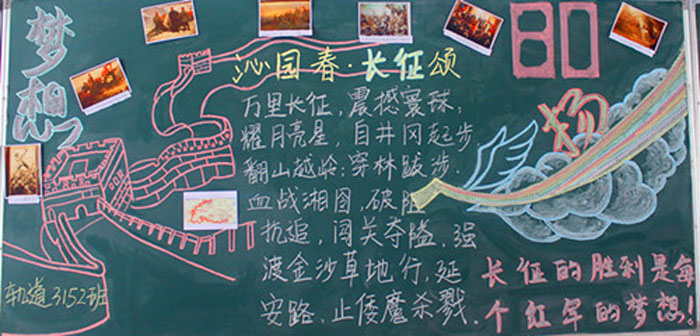 梦想
沁园春·长征颂
万里长征，震撼寰球；
耀月亮星，自井冈起步
翻山越岭；穿林跋涉．
血战湘图，破胆
抗追，闯关夺隘，强
渡金沙草地行，延
安路，止倭魔杀戮．
80
扬
长征的胜利是每
个红军的梦想．
轨道3152班